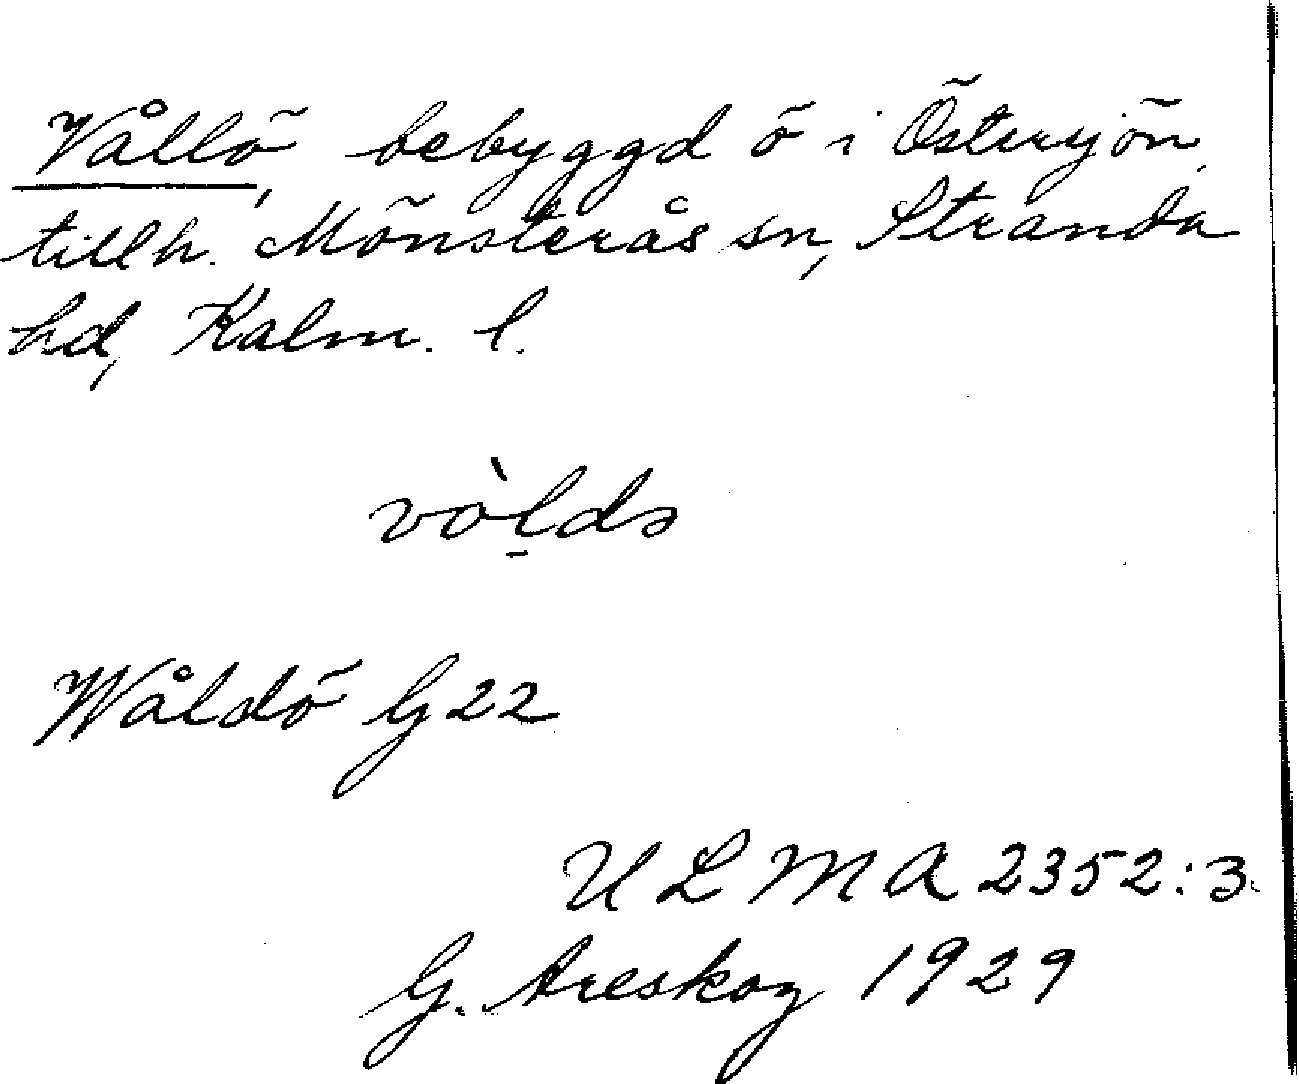 Vållö, bebyggd ö i Östersjön,
tillh. Mönsterås sn, Stranda
hd, Kalm. l.
vòl̠də
Wåldö G22
ULMA 2352:3.
G. Areskog 1929